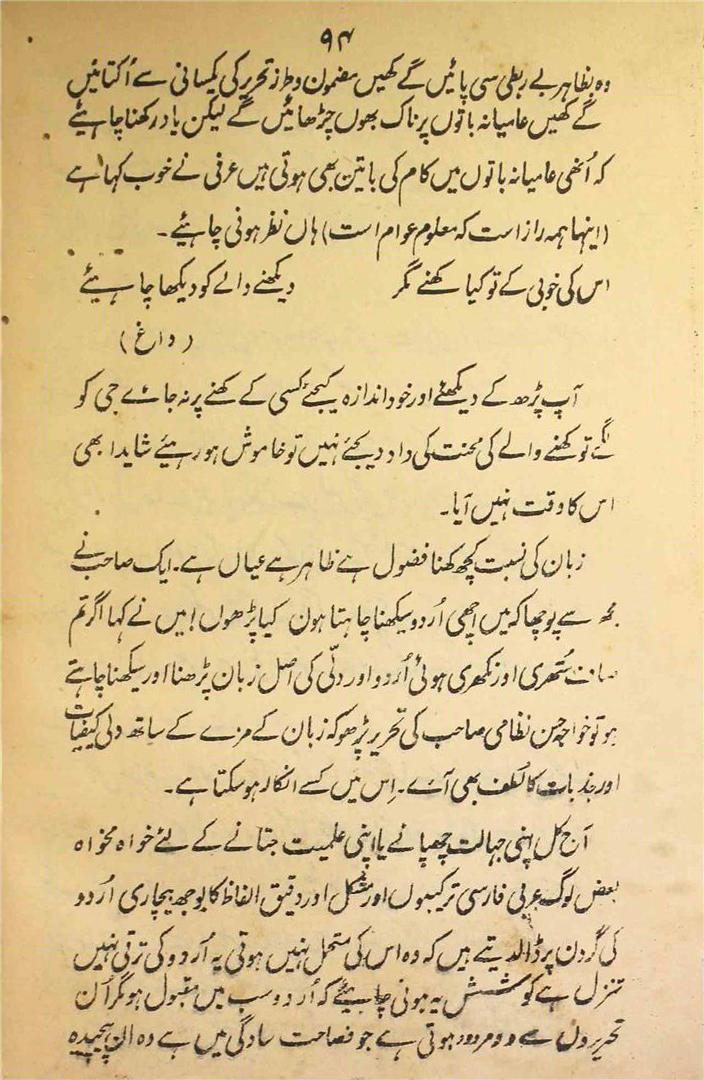 ۹۴
وہ بظاہر بے ربطی سی پائیں گے کہیں مضمون و طرز تحریر کی یکسانی سے اُکتائیں
گے کہیں عامیانہ باتوں پر ناک بھوں چڑھائیں گے لیکن یاد رکھنا چاہئیے
کہ اُنھی عامیانہ باتوں میں کام کی باتین بھی ہوتی ہیں عرفی نے خوب کہا ہے
(اینہا ہمہ راز است کہ معلوم عوام است) ہاں نظر ہونی چاہئیے۔
اس کی خوبی کے تو کیا کھنے مگر دیکھنے والے کو دیکھا چاہئیے
(داغ)
آپ پڑھ کے دیکھئے اور خود اندازہ کیجئے کسی کے کھنے پر نہ جاۓ جی کو
لگے تو کھنے والے کی محنت کی داد دیجئے نہیں تو خاموش ہو رہئیے شاید ابھی
اس کا وقت نہیں آیا۔
زبان کی نسبت کچھ کھنا فضول ہے ظاہر ہے عیاں ہے۔ ایک صاحب نے
مجھ سے پوچھا کہ میں اچھی اُردو سیکھنا چاہتا ہون کیا پڑھوں! میں نے کہا اگر تم
صاف سُتھری اور نکھری ہوئی اُردو اور دلّی کی اصل زبان پڑھنا اور سیکھنا چاہتے
ہو تو خواجہ حسن نظامی صاحب کی تحریر پڑھو کہ زبان کے مزے کے ساتھ دلی کیفیات
اور جذبات کا لُطف بھی آۓ۔ اِس میں کسے انکار ہو سکتا ہے۔
آج کل اپنی جہالت چھپانے یا اپنی علمیت جتانے کے لئے خواہ مخواہ
بعض لوگ عربی فارسی ترکیبوں اور مشکل اور دقیق الفاظ کا بوجھ بیچاری اُردو
کی گردن پر ڈالدیتے ہیں کہ وہ اس کی متحمل نہیں ہوتی یہ اُردو کی ترقی نہیں
تنزل ہے کوشش یہ ہونی چاہئیے کہ اُردو سب میں مقبول ہو مگر اُن
تحریروں سے وہ مردود ہوتی ہے جو فصاحت سادگی میں ہے وہ ان پیچیدہ